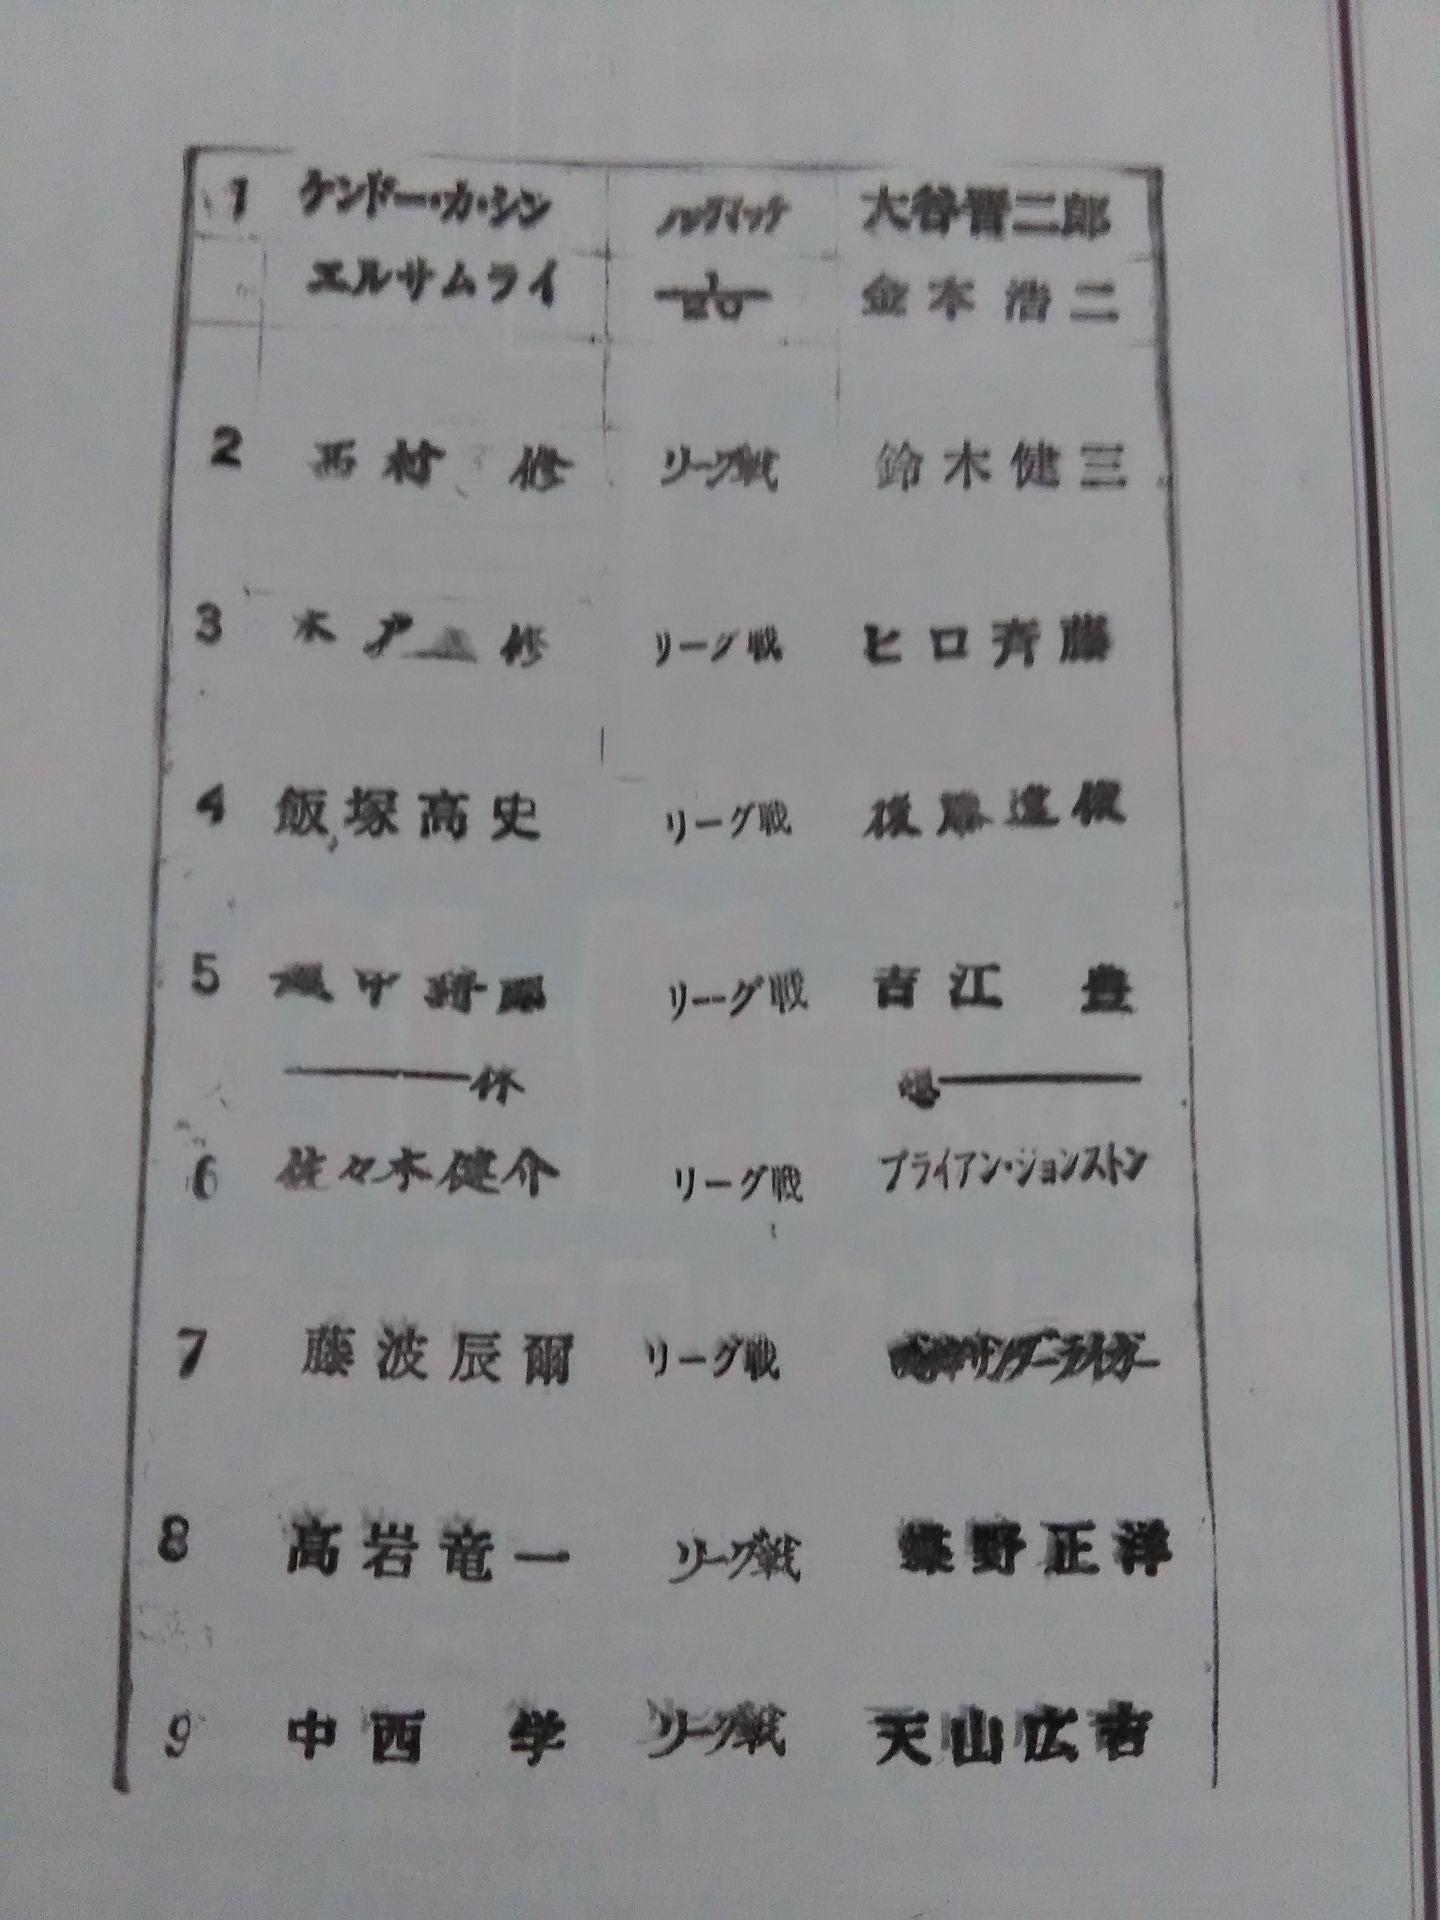 1 ケンドー・カ・シン タッグマッチ 大谷晋二郎
エルサムライ 1 金本浩二
2 西村 修 リーグ戦 鈴木健三
3 木戸 修 リーグ戦 ヒロ斉藤
4 飯塚高史 リーグ戦 後藤達俊
5 越中詩郎 リーグ戦 吉江 豊
休 憩
6 佐々木健介 リーグ戦 ブライアン・ジョンストン
7 藤波辰爾 リーグ戦 獣神サンダーライガー
8 高岩竜一 リーグ戦 蝶野正洋
9 中西 学 リーグ戦 天山広吉